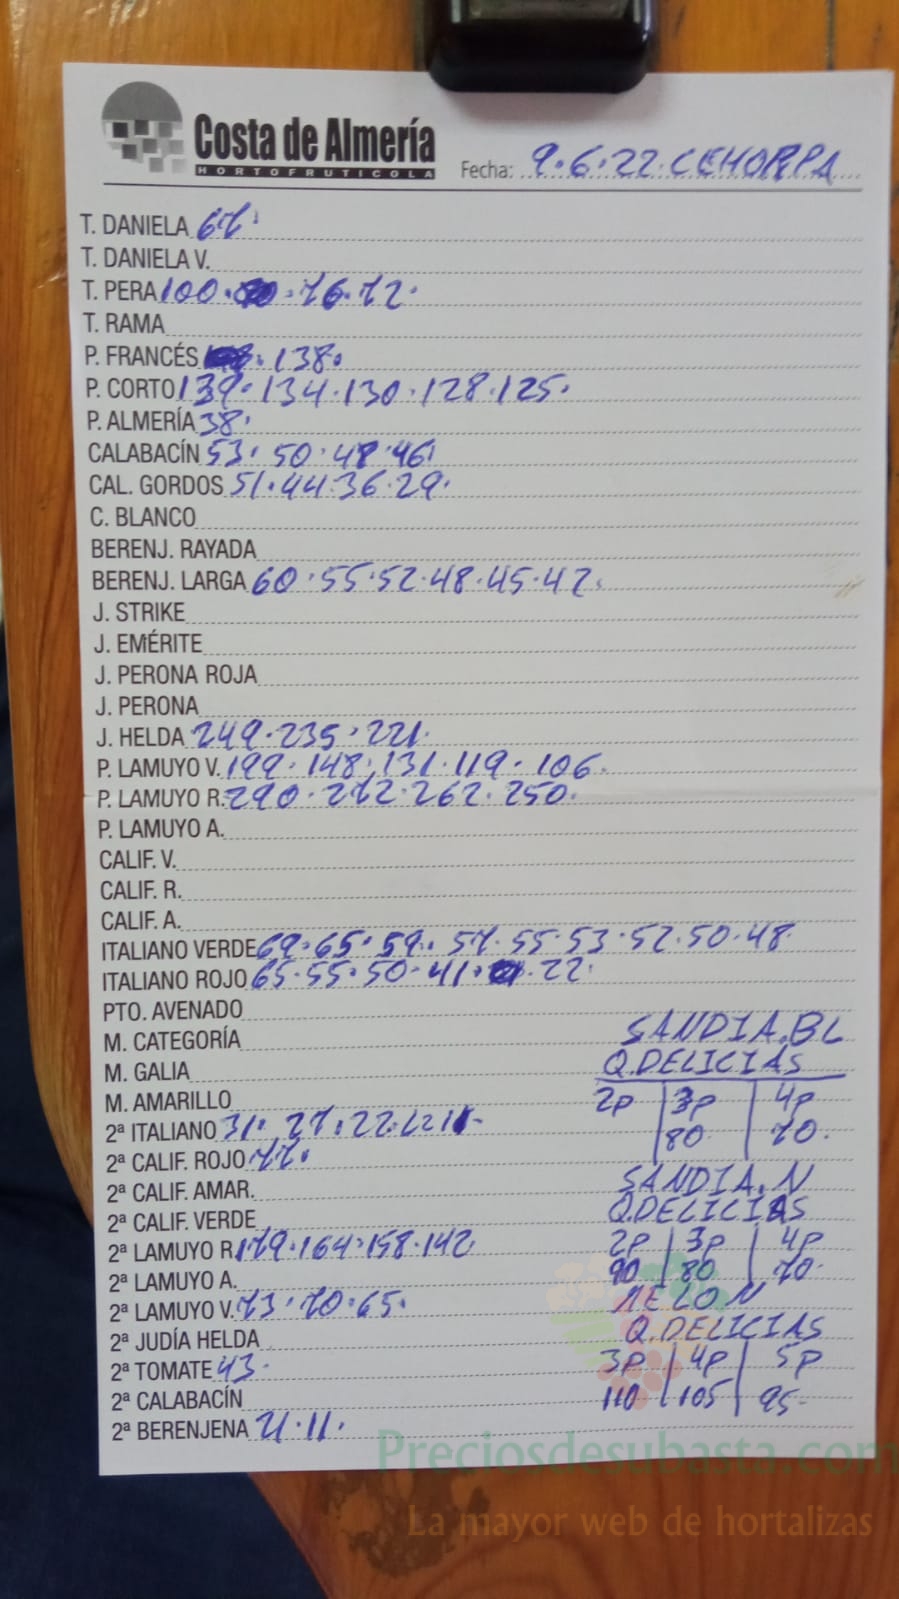 Costa de Almería
HORTOFRUTICOLA
Fecha: 9.6.22.CEHORPA
T. DANIELA 67.
T. DANIELA V.
T. PERA 100. . 76.72.
T. RAMA
P. FRANCÉS . 138.
P. CORTO 139. 134.130.128.125.
P. ALMERÍA 38.
CALABACÍN 53. 50.48.46.
CAL. GORDOS 51.44.36.29.
C. BLANCO
BERENJ. RAYADA
BERENJ. LARGA 60.55.52.48.45.42.
J. STRIKE
J. EMÉRITE
J. PERONA ROJA
J. PERONA
J. HELDA 249.235.221.
P. LAMUYO V. 199.148.131.119.106.
P. LAMUYO R. 290.272.262.250.
P. LAMUYO A.
CALIF. V.
CALIF. R.
CALIF. A.
ITALIANO VERDE 69.65.59.57.55.53.52.50.48.
ITALIANO ROJO 65.55.50.41. .22.
PTO. AVENADO
M. CATEGORÍA
M. GALIA
M. AMARILLO
2ª ITALIANO 31.27.22.
2ª CALIF. ROJO 77.
2ª CALIF. AMAR.
2ª CALIF. VERDE
2ª LAMUYO R 179.164.158.142
2ª LAMUYO A.
2ª LAMUYO V. 73.70.65.
2ª JUDÍA HELDA
2ª TOMATE 43.
2ª CALABACÍN
2ª BERENJENA 21.11.
SANDIA.BL
Q.DELICIAS
2P 3P 4P
80 70.
SANDIA.N
Q.DELICIAS
2P 3P 4P
90 80 70.
MELON
Q.DELICIAS
3P 4P 5P
110 105 95.
Preciosdesubasta.com
La mayor web de hortalizas